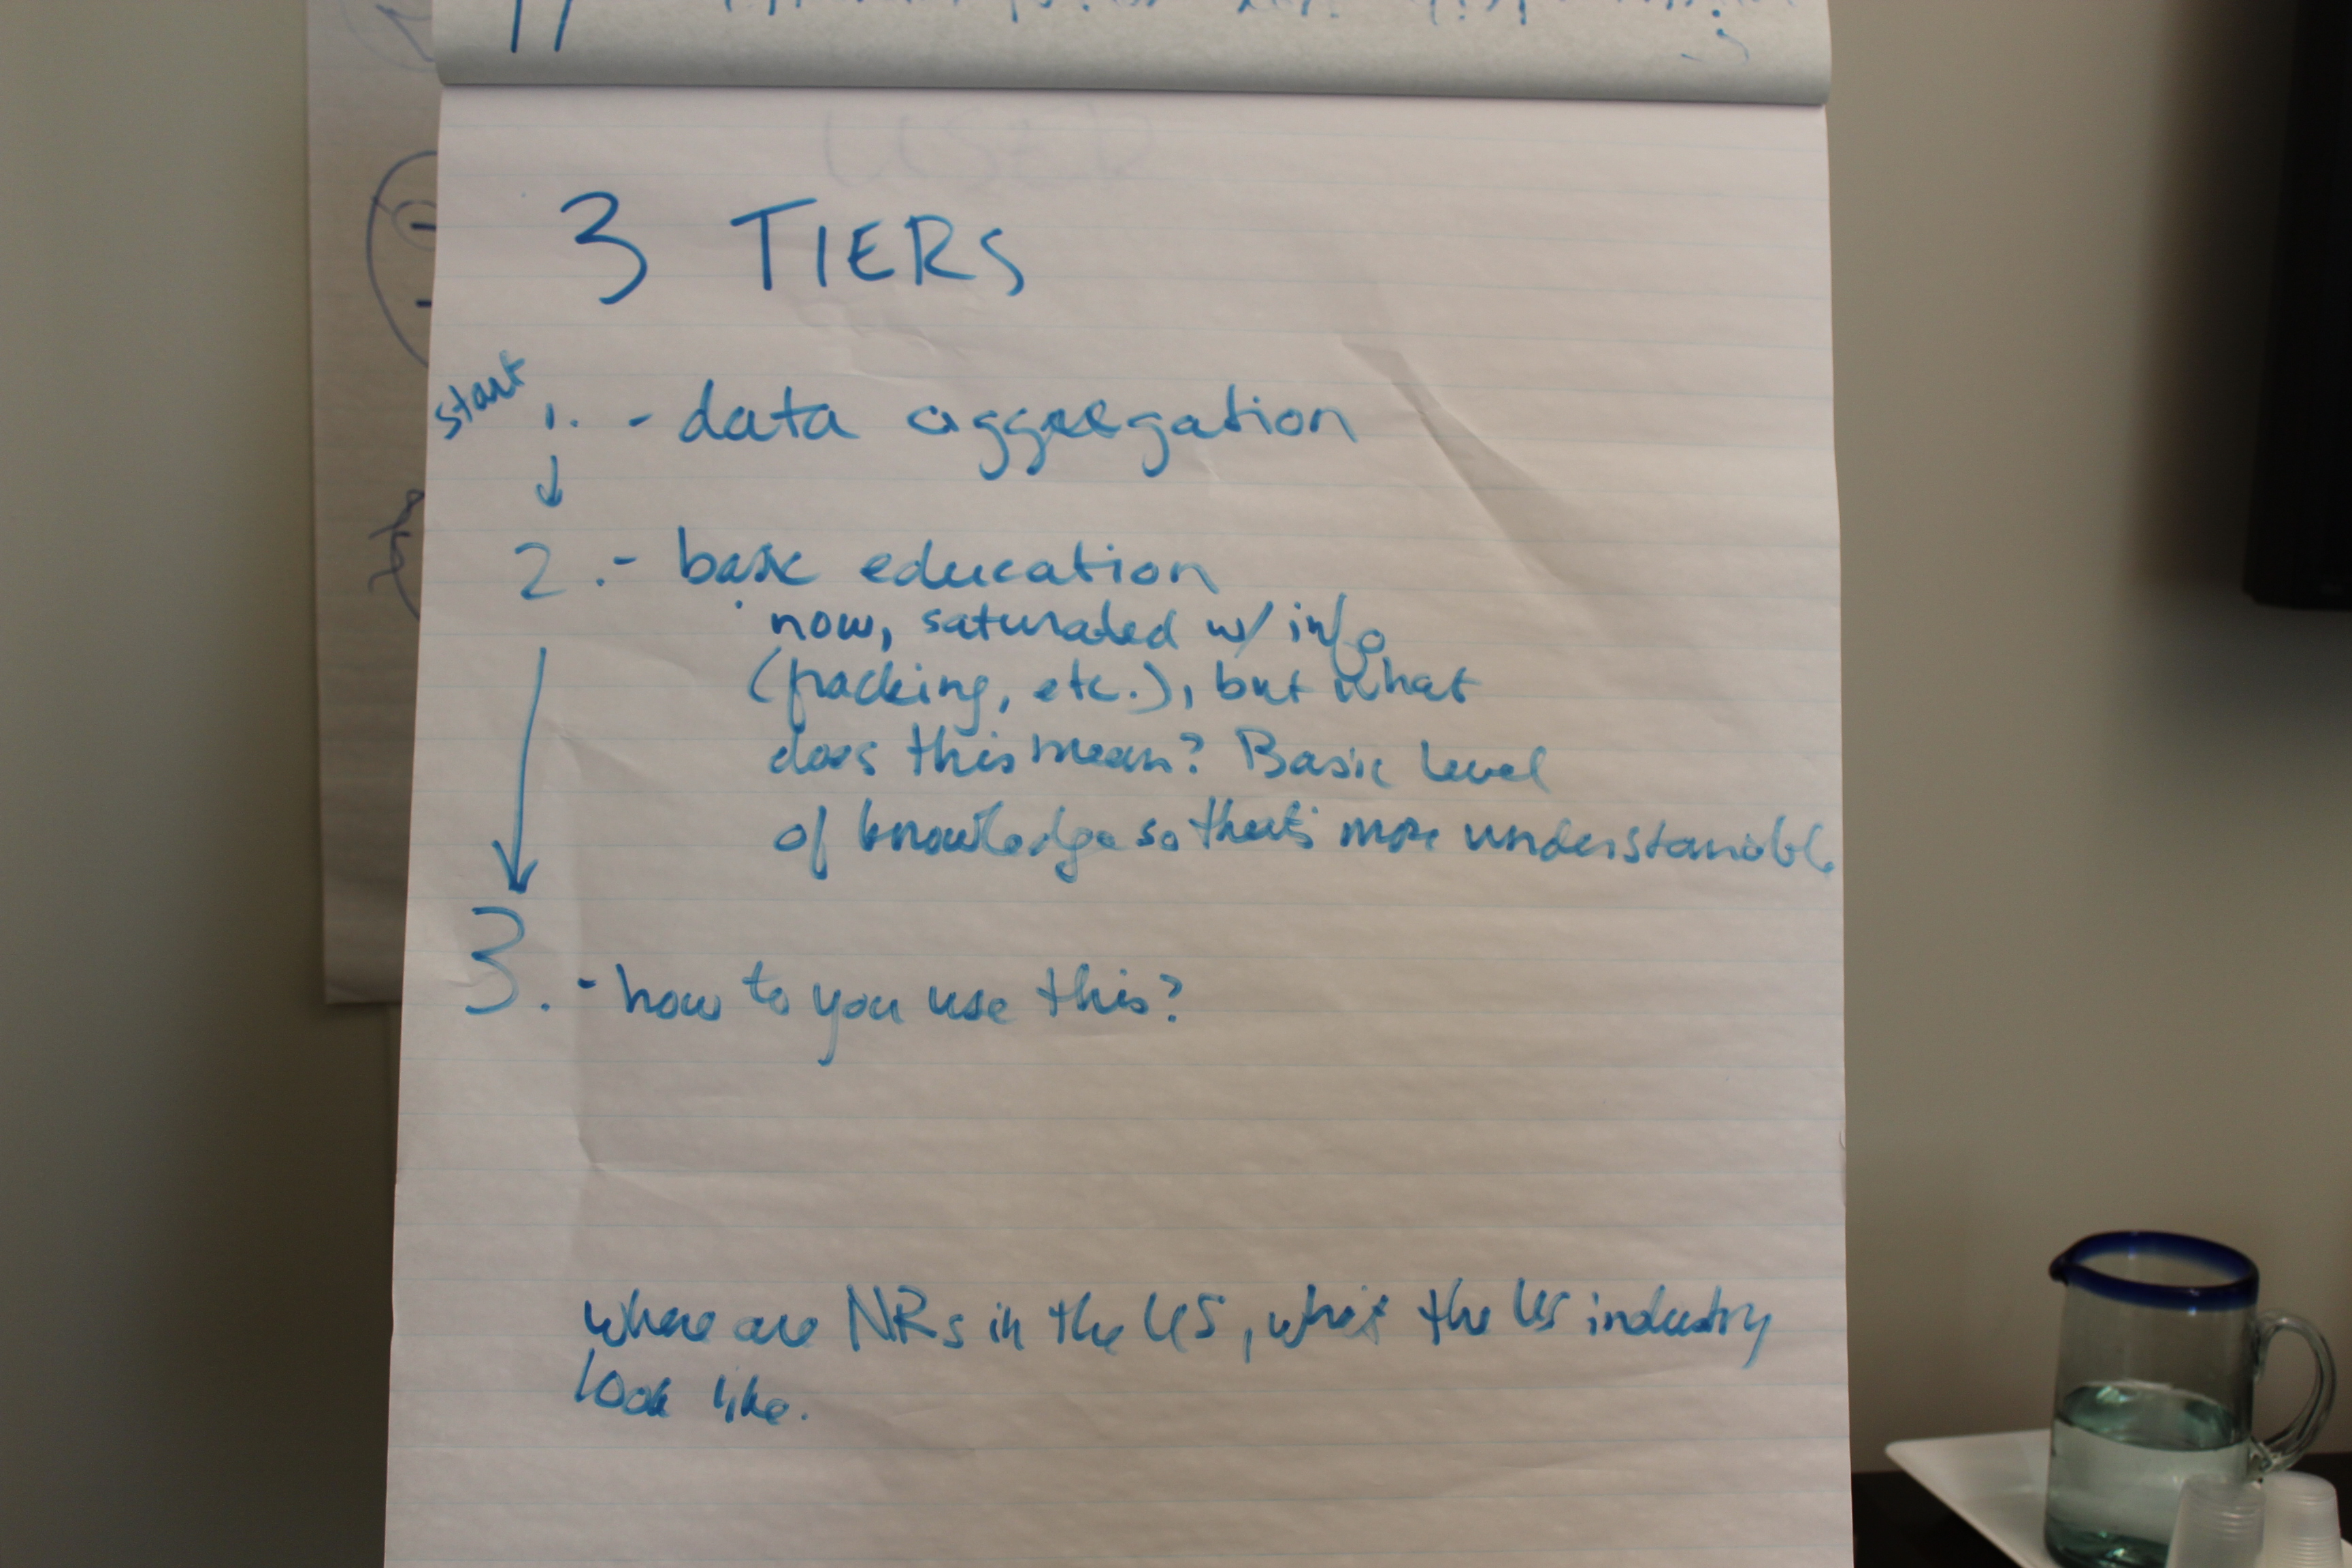 USER
3 TIERS
start 1. - data aggregation
2. - basic education
now, saturated w/ info
(fracking, etc.), but what
does this mean? Basic level
of knowledge so that's more understandable
3. - how to you use this?
where are NRs in the US, what the US industry
look like.